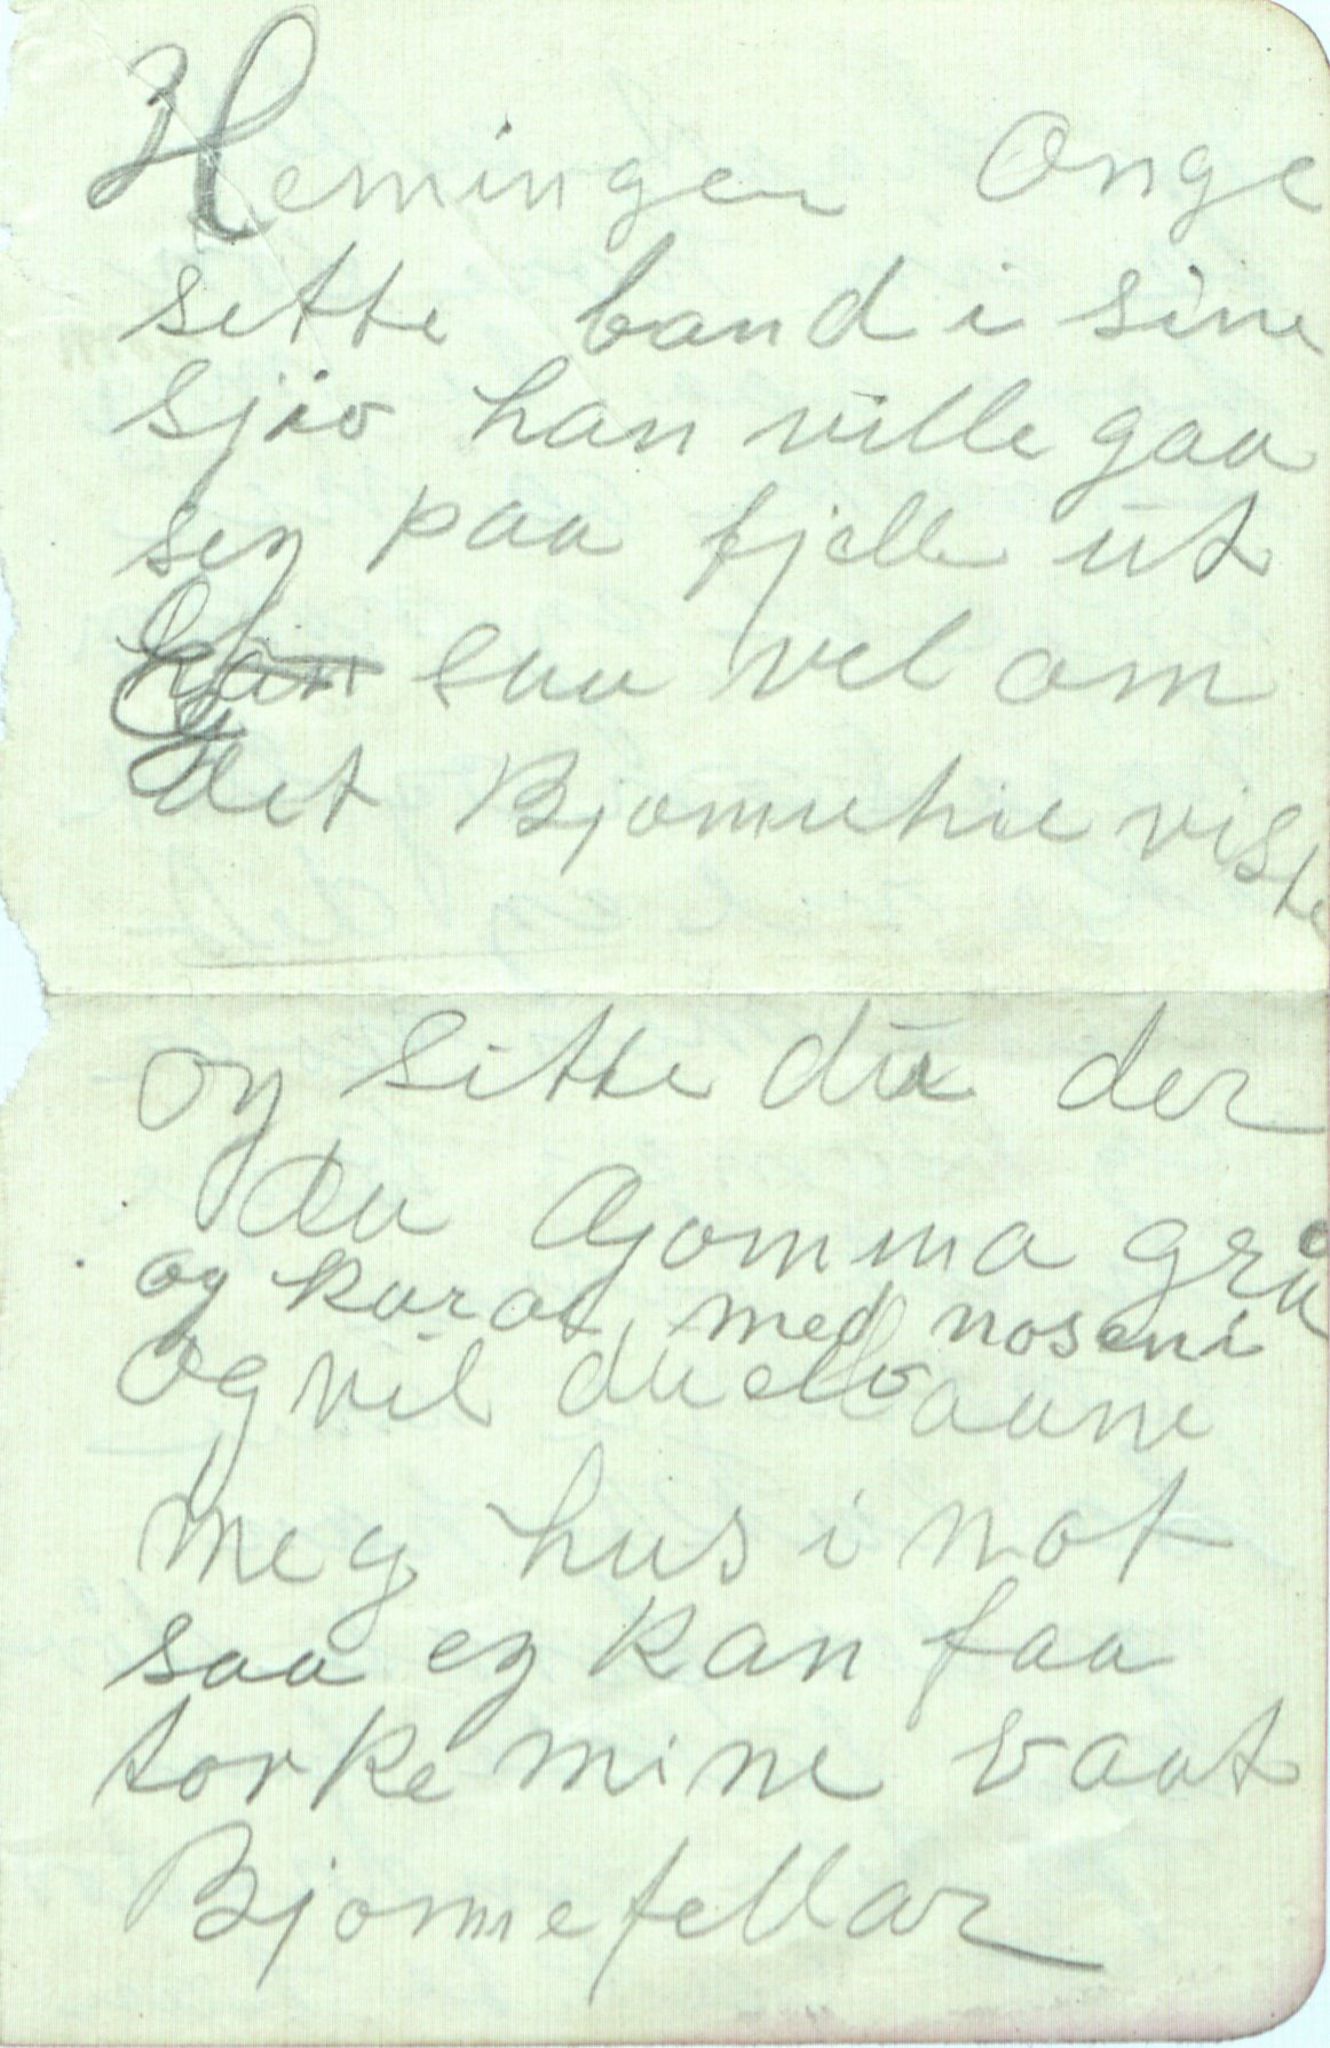 Hemingen Onge
sette band i sine
sjio han ville gaa
seg paa fjelle ut
han saa vel om
det Bjornehie viste
og sitte du der
du Gjomma grå
og karar med noseni
og vil du laane
meg hus i not
saa eg kan faa
torke mine vaat
Bjornefellar